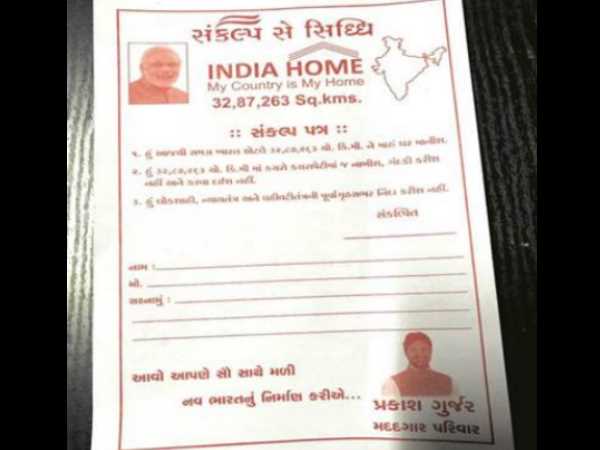 સંકલ્પ સે સિધ્ધિ
INDIA HOME
My Country is My Home
32,87,263 Sq.kms.
:: સંકલ્પ પત્ર ::
૧. હું આજથી સમગ્ર ભારત એટલે ૩૨,૮૭,૨૬૩ ચો. કિ.મી. ને મારું ઘર માનીશ.
૨. હું ૩૨,૮૭,૨૬૩ ચો. કિ.મી માં કચરો કચરાપેટીમાં જ નાખીશ, ગંદકી કરીશ
નહીં અને કરવા દઈશ નહીં.
૩. હું લોકશાહી, ન્યાયતંત્ર અને વહીવટીતંત્રની પૂર્વાગ્રહસભર નિંદા કરીશ નહીં.
સંકલ્પિત
નામ :
મો.
સરનામું :
આવો આપણે સૌ સાથે મળી
નવ ભારતનું નિર્માણ કરીએ...
પ્રકાશ ગુર્જર
મદદગાર પરિવાર